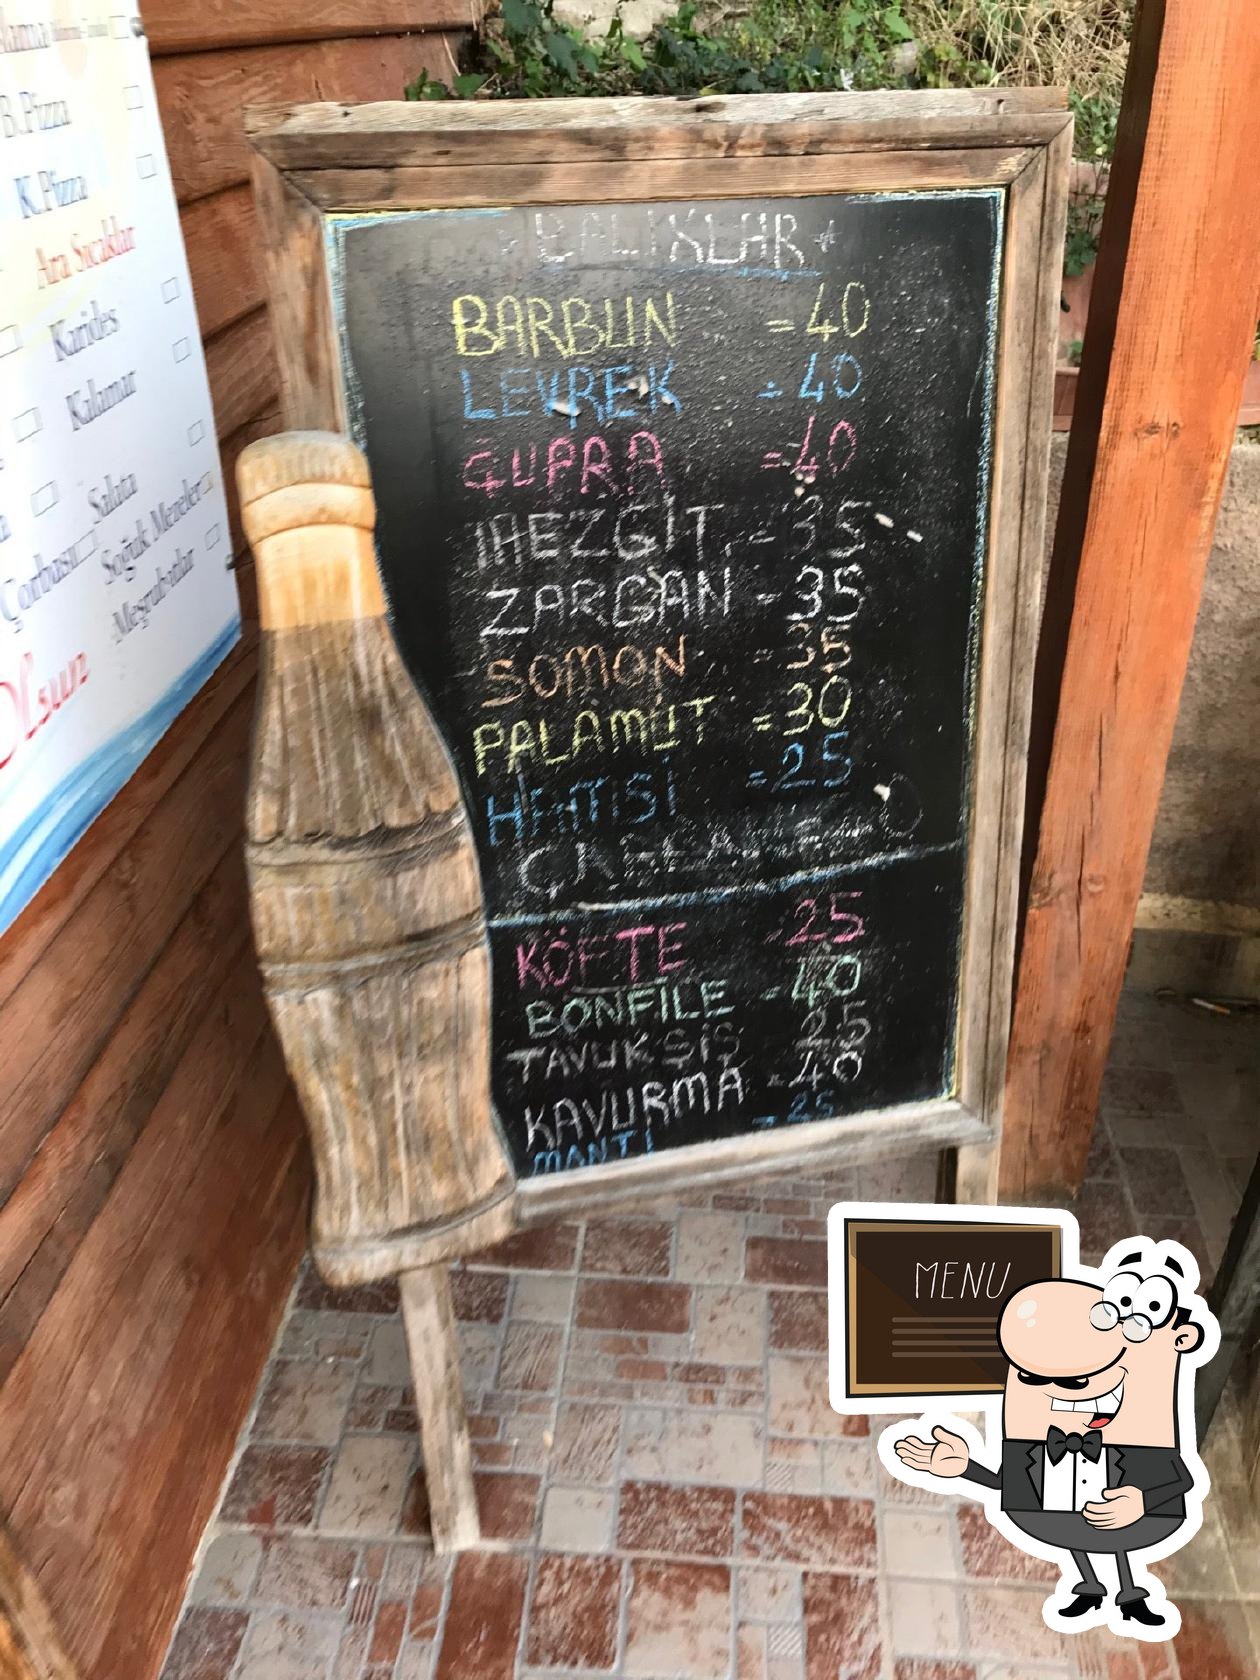 B.Pizza
K.Pizza
Ara Sıcaklar
Karides
Kalamar
Salata
Soğuk Mezeler
Çorbası
Meşrubatlar
Olsun
BALIKLAR
BARBUN =40
LEVREK =40
ÇUPRA =40
MEZGİT =35
ZARGAN =35
SOMON =35
PALAMUT =30
HAMSİ =25
KÖFTE 25
BONFİLE -40
TAVUK ŞİŞ 25
KAVURMA -40
MANTI = 25
MENU